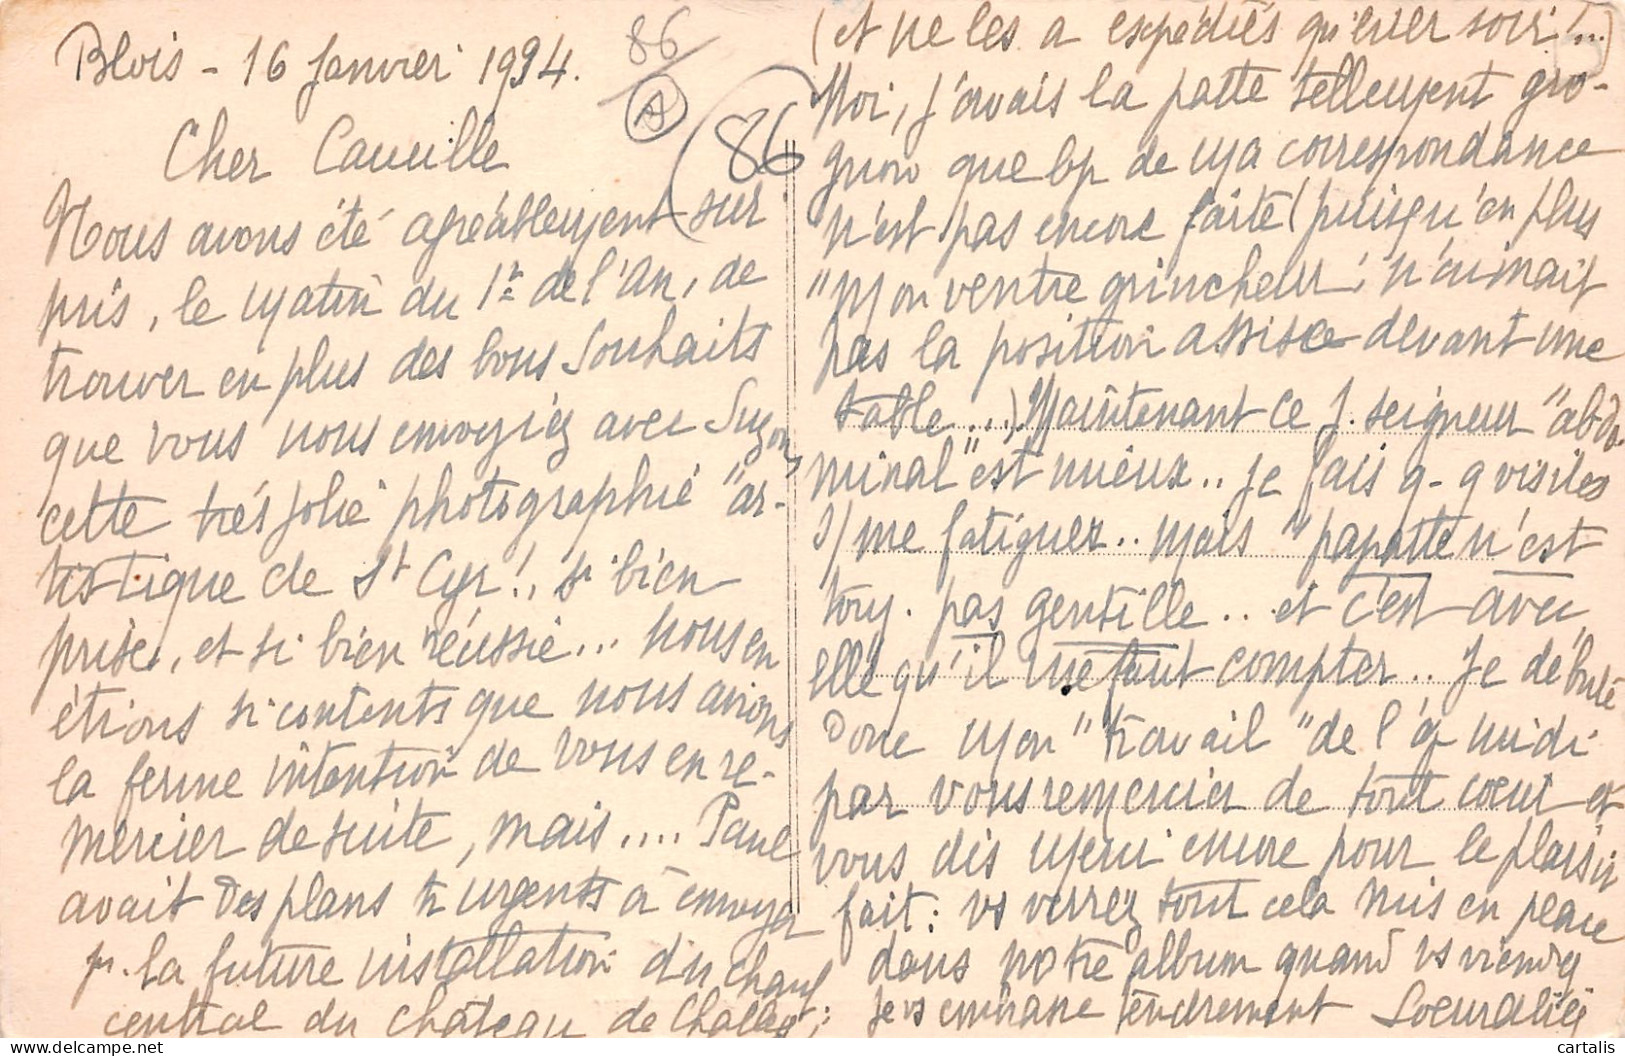 Blois - 16 Janvier 1934.
86
A
(86)
Cher Camille
Nous avons été agréablement sur
pris, le matin du 1er de l'An, de
trouver en plus des bons souhaits
que vous nous envoyiez avec Suzon,
cette très jolie photographie "ar-
tistique de St Cyr!., si bien
prise, et si bien réussie... nous en
étions si contents que nous avions
la ferme intention de vous en re-
mercier de suite, mais.... Paul
avait des plans tr urgents à envoyer
pr. la future installation du chauf:
central du château de
(et ne les a expédiés qu'hier soir!...)
Moi, j'avais la patte tellement gro-
gnon que bp de ma correspondance
n'est pas encore faite (puisqu'en plus
"mon ventre grincheur, n'aimait
pas la position assise devant une
table...) Maintenant ce J. seigneur "abdo
minal" est mieux.. Je fais q-q visites
s/ me fatiguer.. mais "papatte n'est
touj. pas gentille.. et c'est avec
elle qu'il me faut compter.. Je débute
donc mon "travail" de l'ap midi
par vous remercier de tout coeur et
vous dis merci encore pour le plaisir
fait: vs verrez tout cela mis en place
dans notre album quand vs viendrez
Je vs embrasse tendrement
cartalis